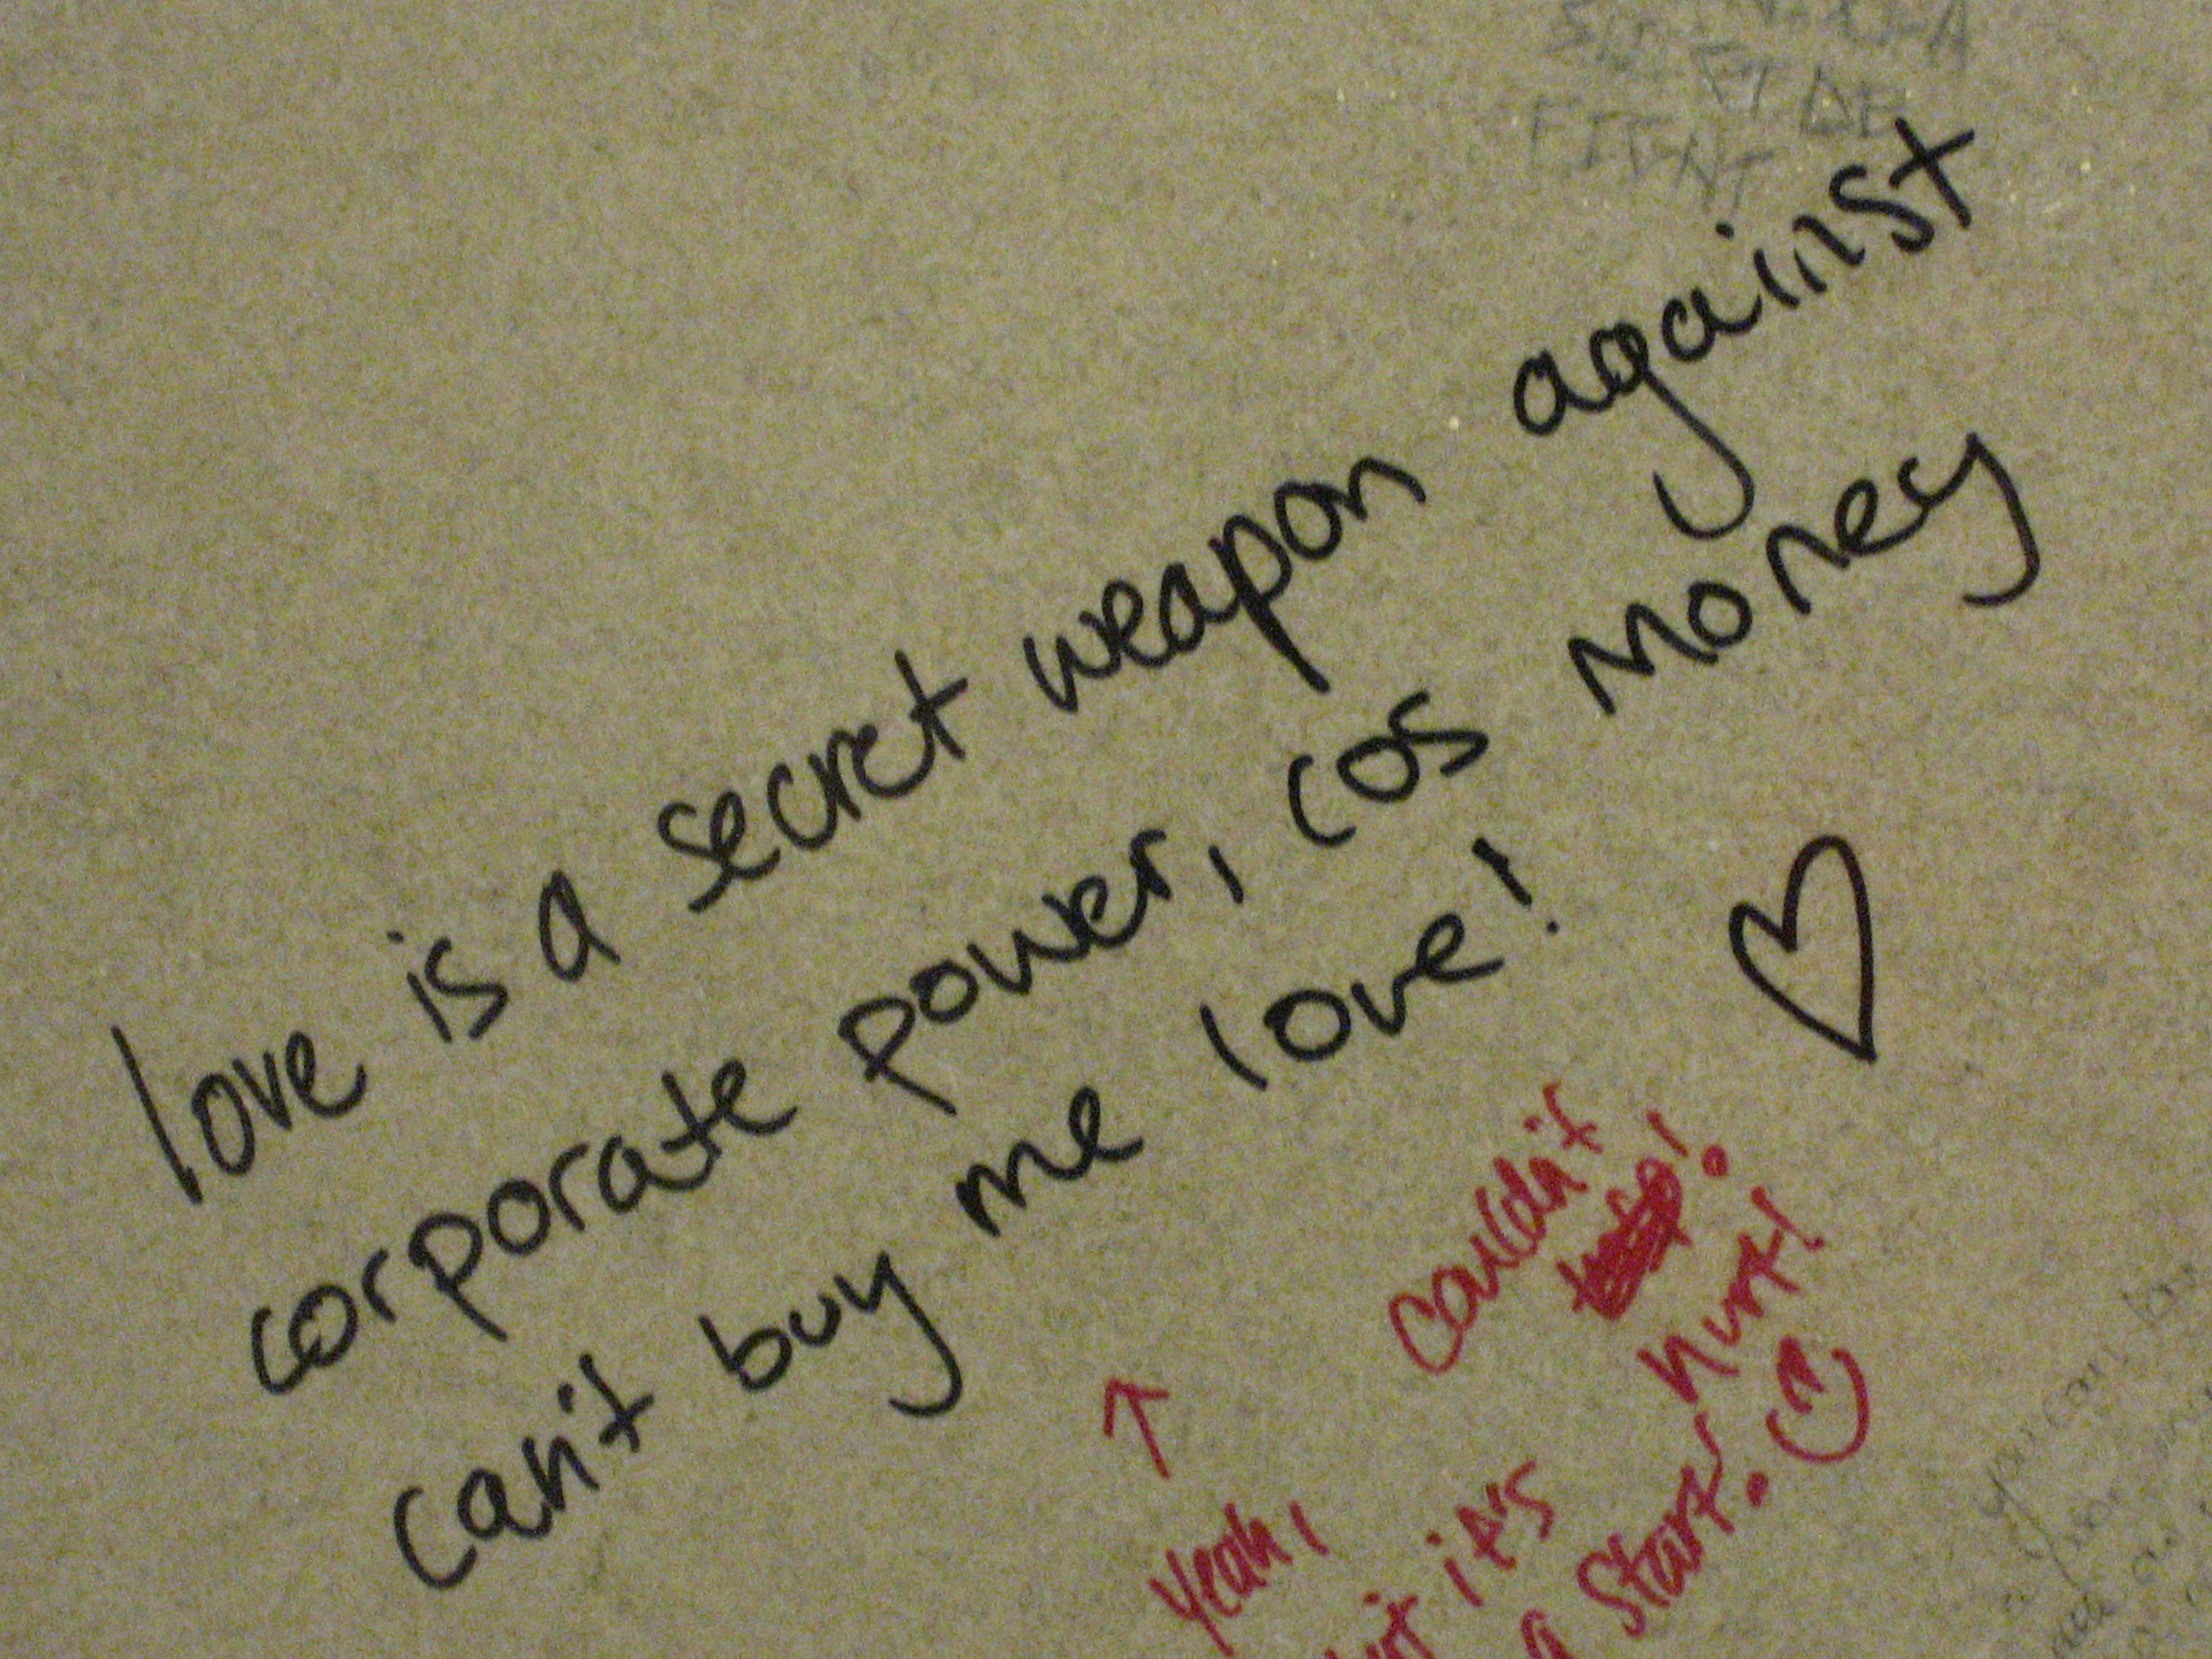 FIGHT
love is a secret weapon against
corporate power, cos money
can't buy me love!
couldn't
hurt!
Yeah,
but it's
a start!